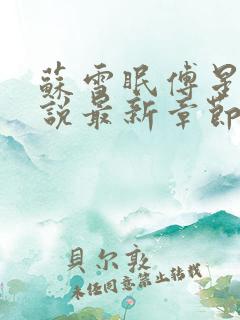 蘇雪眠傅星
說最新章節
貝尔敦
未任同意禁止转载